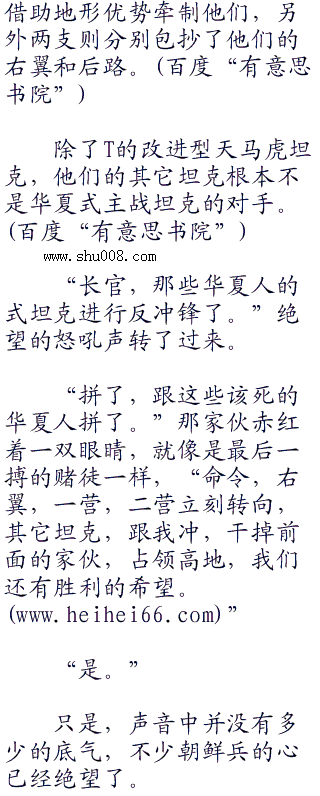 借助地形优势牵制他们，另
外两支则分别包抄了他们的
右翼和后路。(百度“有意思
书院”)
除了T的改进型天马虎坦
克，他们的其它坦克根本不
是华夏式主战坦克的对手。
(百度“有意思书院”)
www.shu008.com
“长官，那些华夏人的
式坦克进行反冲锋了。”绝
望的怒吼声转了过来。
“拼了，跟这些该死的
华夏人拼了。”那家伙赤红
着一双眼睛，就像是最后一
搏的赌徒一样，“命令，右
翼，一营，二营立刻转向，
其它坦克，跟我冲，干掉前
面的家伙，占领高地，我们
还有胜利的希望。
(www.heihei66.com)”
“是。”
只是，声音中并没有多
少的底气，不少朝鲜兵的心
已经绝望了。